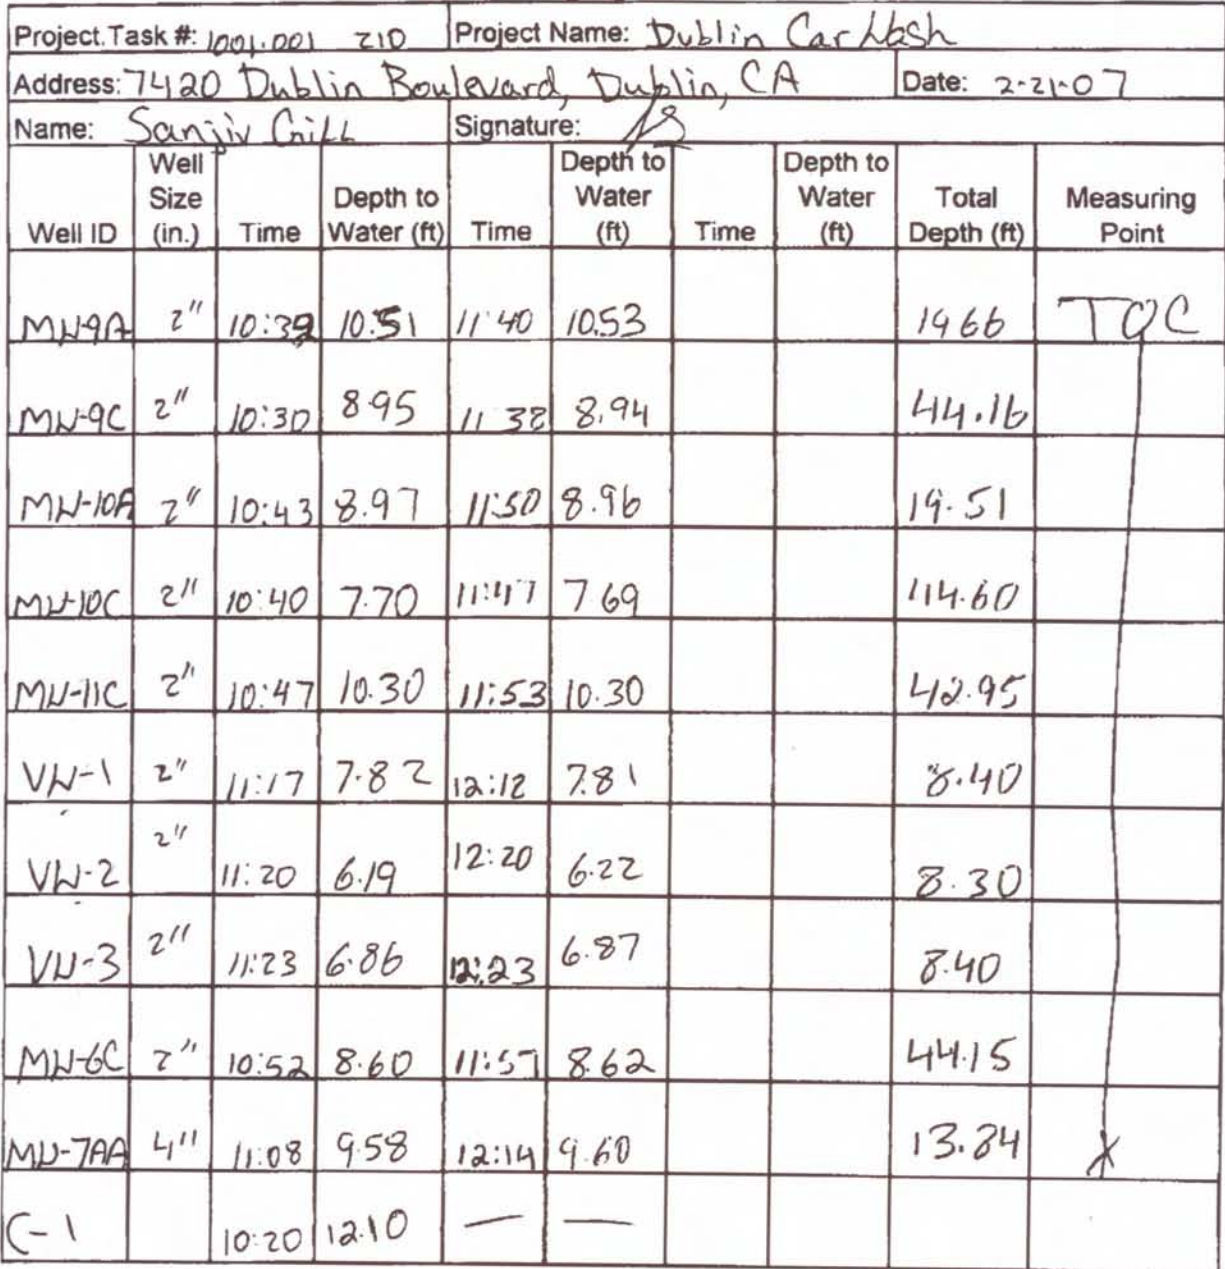 Project.Task #: 1001.001 210 Project Name: Dublin Car Wash
Address: 7420 Dublin Boulevard, Dublin, CA Date: 2-21-07
Name: Sanjiv Gill Signature:
Well ID Well Size (in.) Time Depth to Water (ft) Time Depth to Water (ft) Time Depth to Water (ft) Total Depth (ft) Measuring Point
MW-9A 2" 10:39 10.51 11:40 10.53 19.66 TOC
MW-9C 2" 10:30 8.95 11 38 8.94 44.16
MW-10A 2" 10:43 8.97 11:50 8.96 19.51
MW-10C 2" 10:40 7.70 11:47 7.69 44.60
MW-11C 2" 10:47 10.30 11:53 10.30 42.95
VW-1 2" 11:17 7.82 12:12 7.81 8.40
VW-2 2" 11:20 6.19 12:20 6.22 8.30
VW-3 2" 11:23 6.86 12:23 6.87 8.40
MW-6C 2" 10:52 8.60 11:57 8.62 44.15
MW-7AA 4" 11:08 9.58 12:14 9.60 13.84
C-1 10:20 12.10 — —